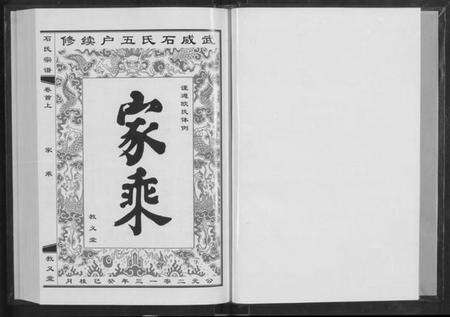 武威石氏五户续修
谨遵欧氏体例
家乘
敦义堂
公元二零一三年癸巳桂月
石氏宗谱
卷首上
家乘
敦义堂